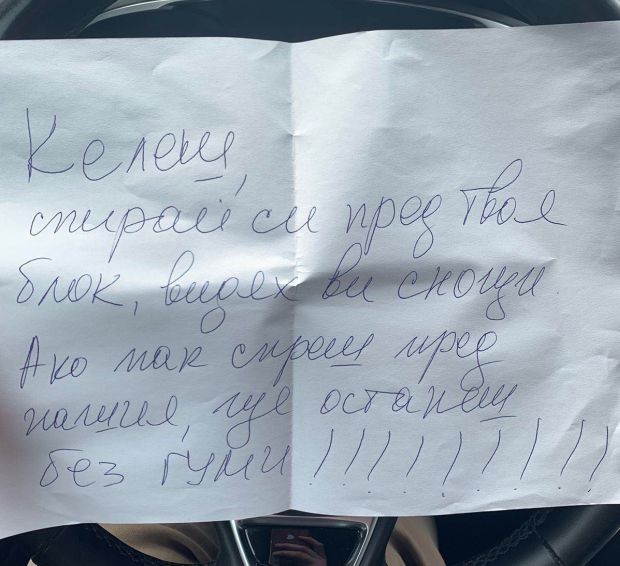 Келеш,
спирай си пред твоя
блок, видях ви снощи.
Ако пак спреш пред
нашия, ще останеш
без гуми!!!!!!!!!